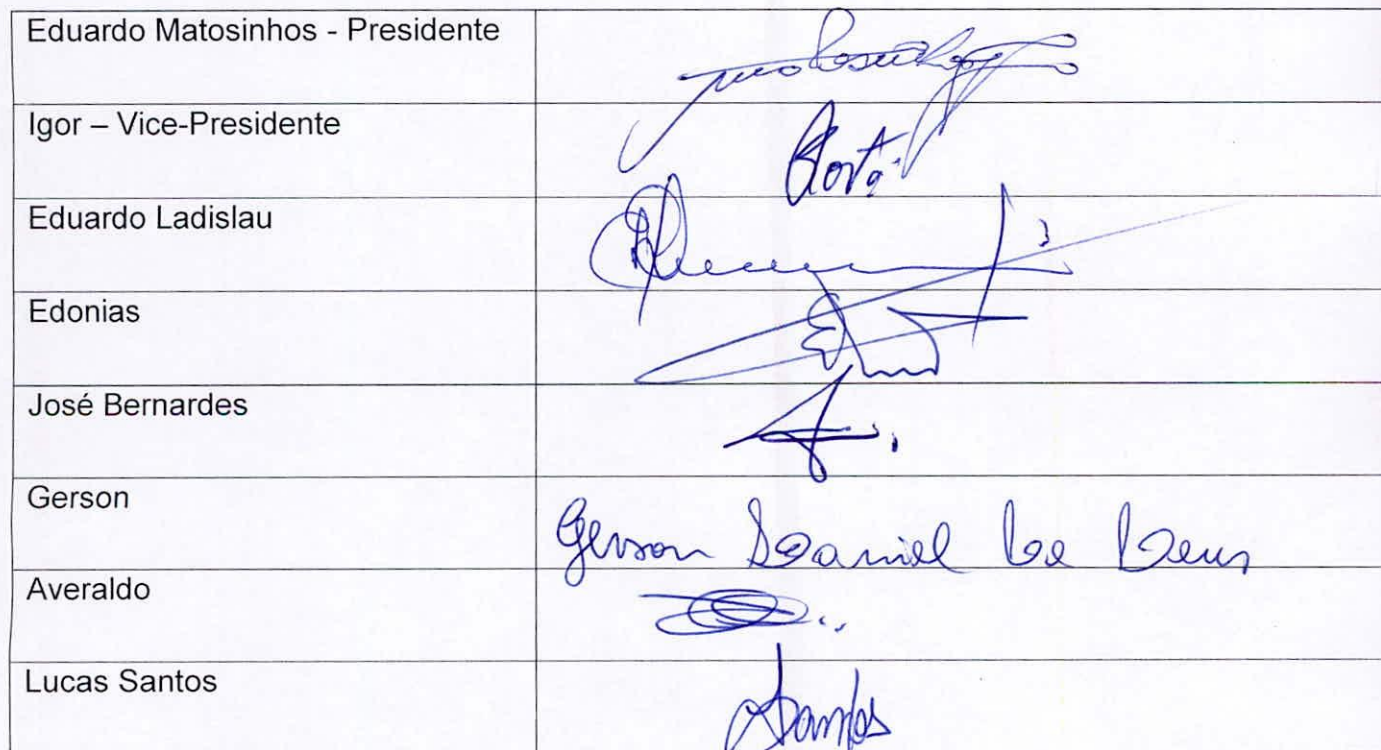 Eduardo Matosinhos - Presidente
Igor – Vice-Presidente
Costa
Eduardo Ladislau
Edonias
José Bernardes
Gerson
Gerson Daniel De Deus
Averaldo
Lucas Santos
Santos